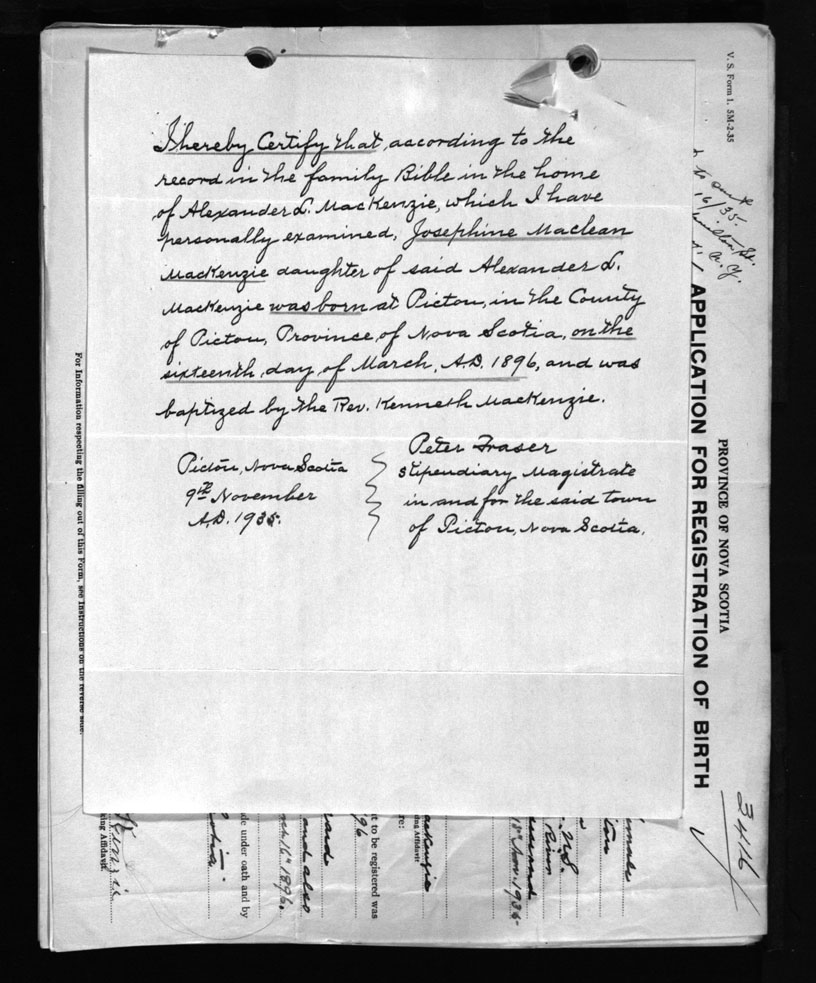 I hereby Certify that, according to the
record in the family Bible in the home
of Alexander L. MacKenzie, which I have
personally examined, Josephine Maclean
MacKenzie daughter of said Alexander L.
MacKenzie was born at Pictou, in the County
of Pictou, Province, of Nova Scotia, on the
sixteenth day of March, A.D. 1896, and was
baptized by the Rev. Kenneth MacKenzie.
Pictou, Nova Scotia
9th November
A.D. 1935.
Peter Fraser
Stipendiary Magistrate
in and for the said town
of Pictou, Nova Scotia.
V. S. Form 1. 5M-2-35
16/35.
PROVINCE OF NOVA SCOTIA
APPLICATION FOR REGISTRATION OF BIRTH
3416
For Information respecting the filling out of this Form, see Instructions on the reverse side.
N.S.
18th Nov. 1935
MacKenzie
king Affidavit
re:
t to be registered was
96
and also
rch 16th 1896.
de under oath and by
otia
king Affidavit